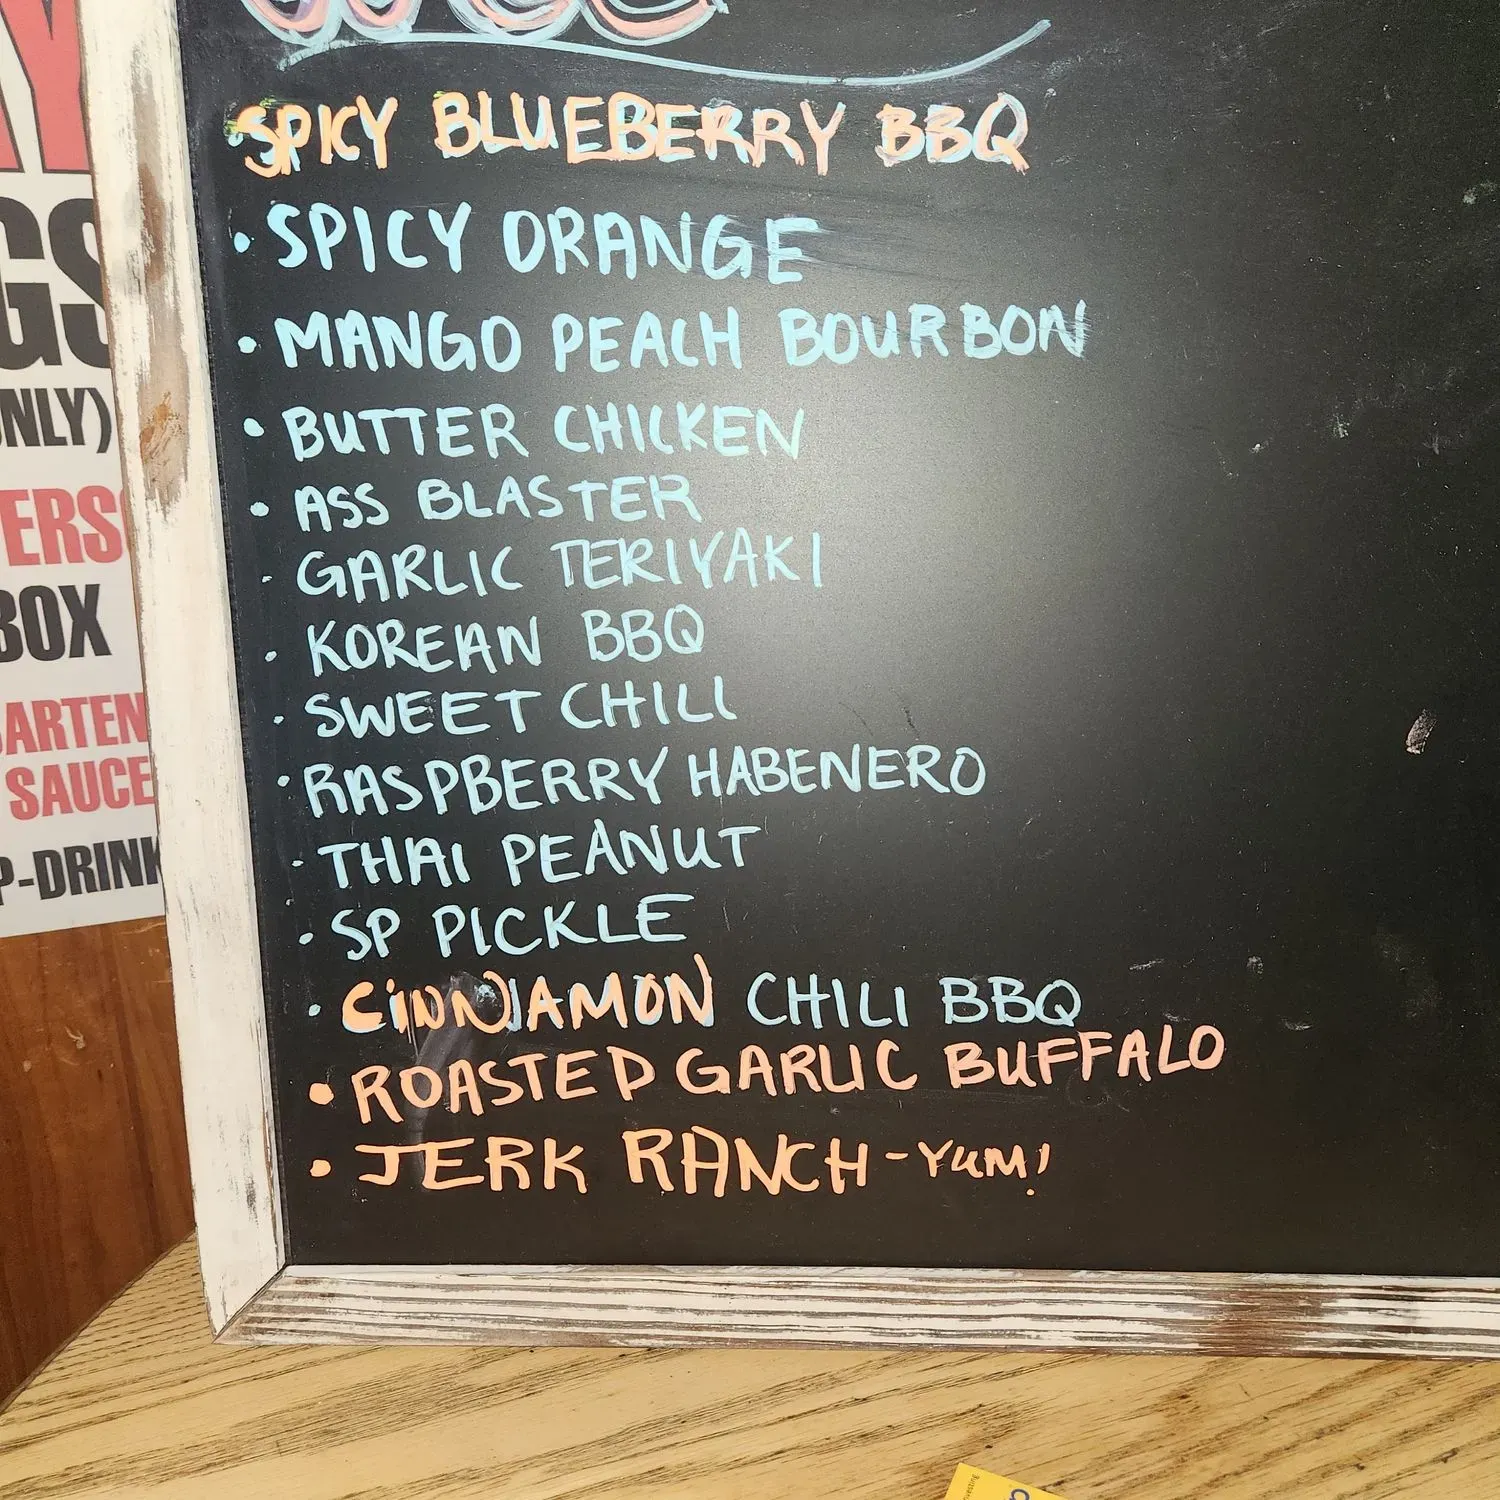 SPICY BLUEBERRY BBQ
• SPICY ORANGE
• MANGO PEACH BOURBON
• BUTTER CHICKEN
• ASS BLASTER
• GARLIC TERIYAKI
• KOREAN BBQ
• SWEET CHILI
• RASPBERRY HABENERO
• THAI PEANUT
• SP PICKLE
• CINNAMON CHILI BBQ
• ROASTED GARLIC BUFFALO
• JERK RANCH - YUM!
GS
NLY)
ERS
BOX
ARTEN
SAUCE
P-DRINK